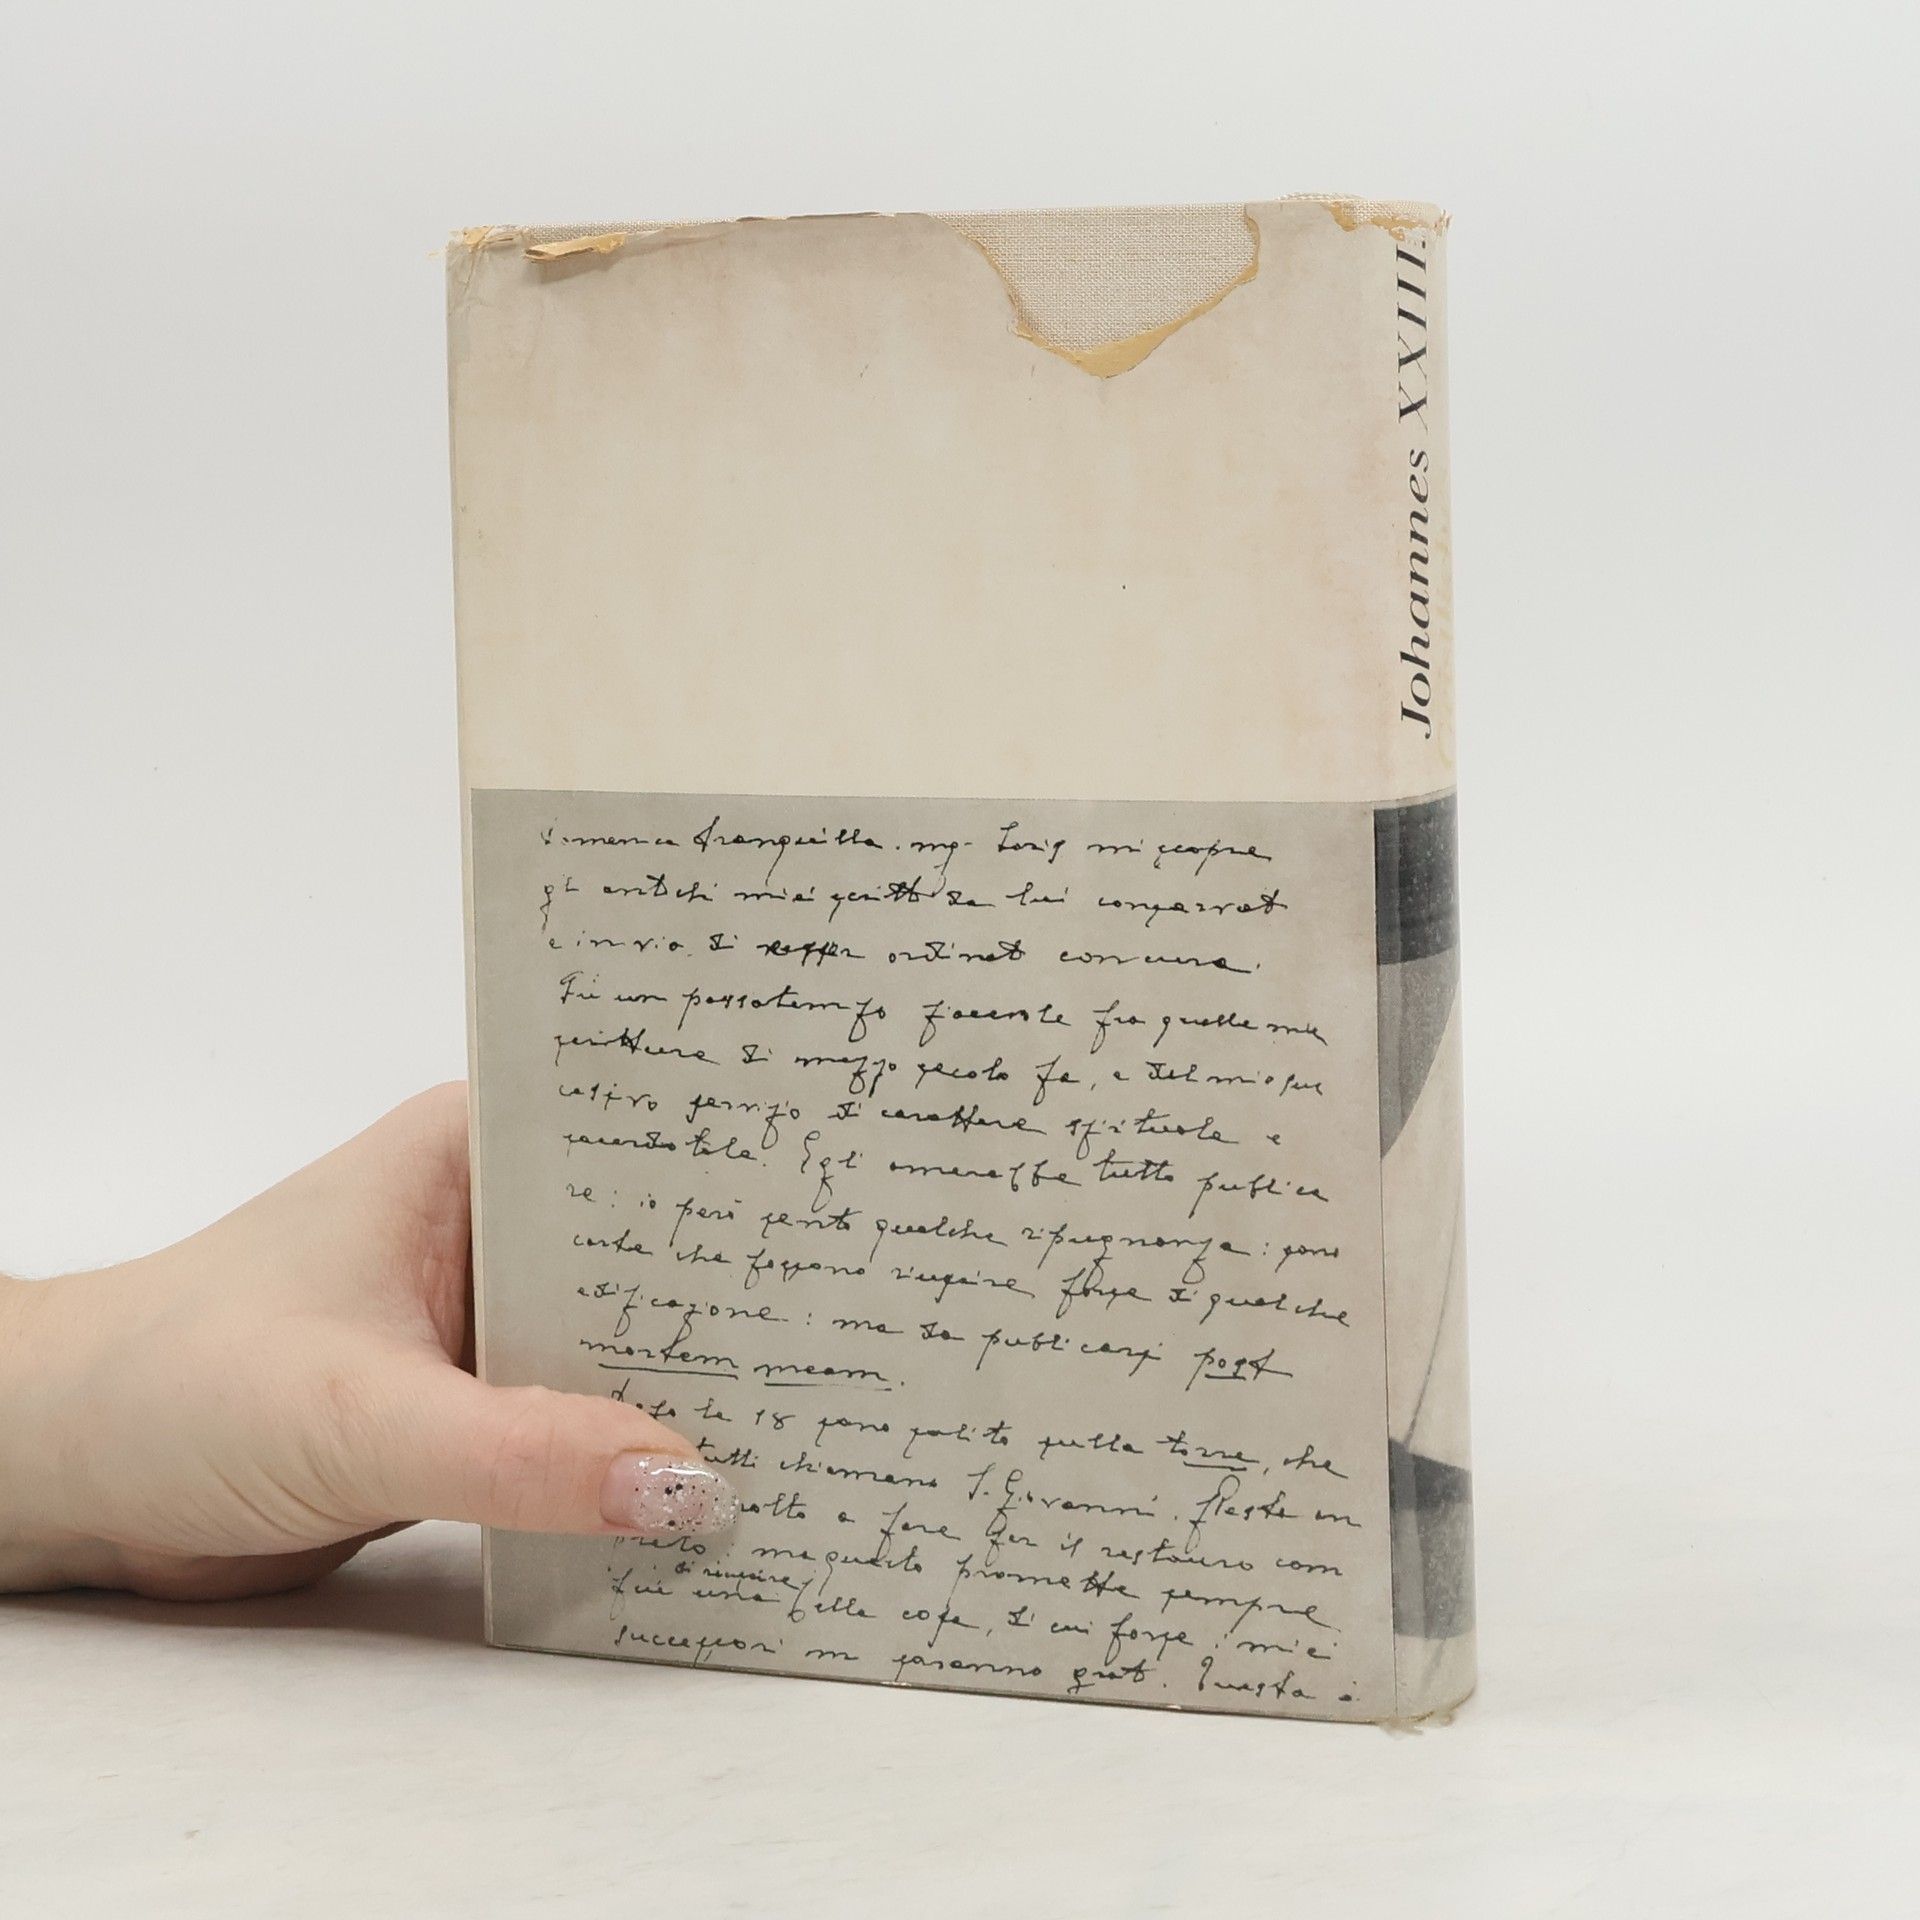 Johannes XXIII.
domenica tranquilla. mgr Loris mi scopre
gli antichi miei scritti da lui conservati
e in via di esser ordinati con cura.
Fu un passatempo piacevole fra quelle mie
scritture di mezzo secolo fa, e del mio suc
cessivo servizio di carattere spirituale e
sacerdotale. Egli amerebbe tutto publica
re: io però sento qualche ripugnanza: sono
carte che possono riuscire forse di qualche
edificazione: ma da publicarsi post
mortem meam.
Dopo le 18 sono salito sulla torre, che
tutti chiamano S. Giovanni. Resta an
molto a fare per il restauro com
pleto: ma questo promette sempre
più di riuscire una bella cosa, di cui forse i miei
successori mi saranno grati. Questa è